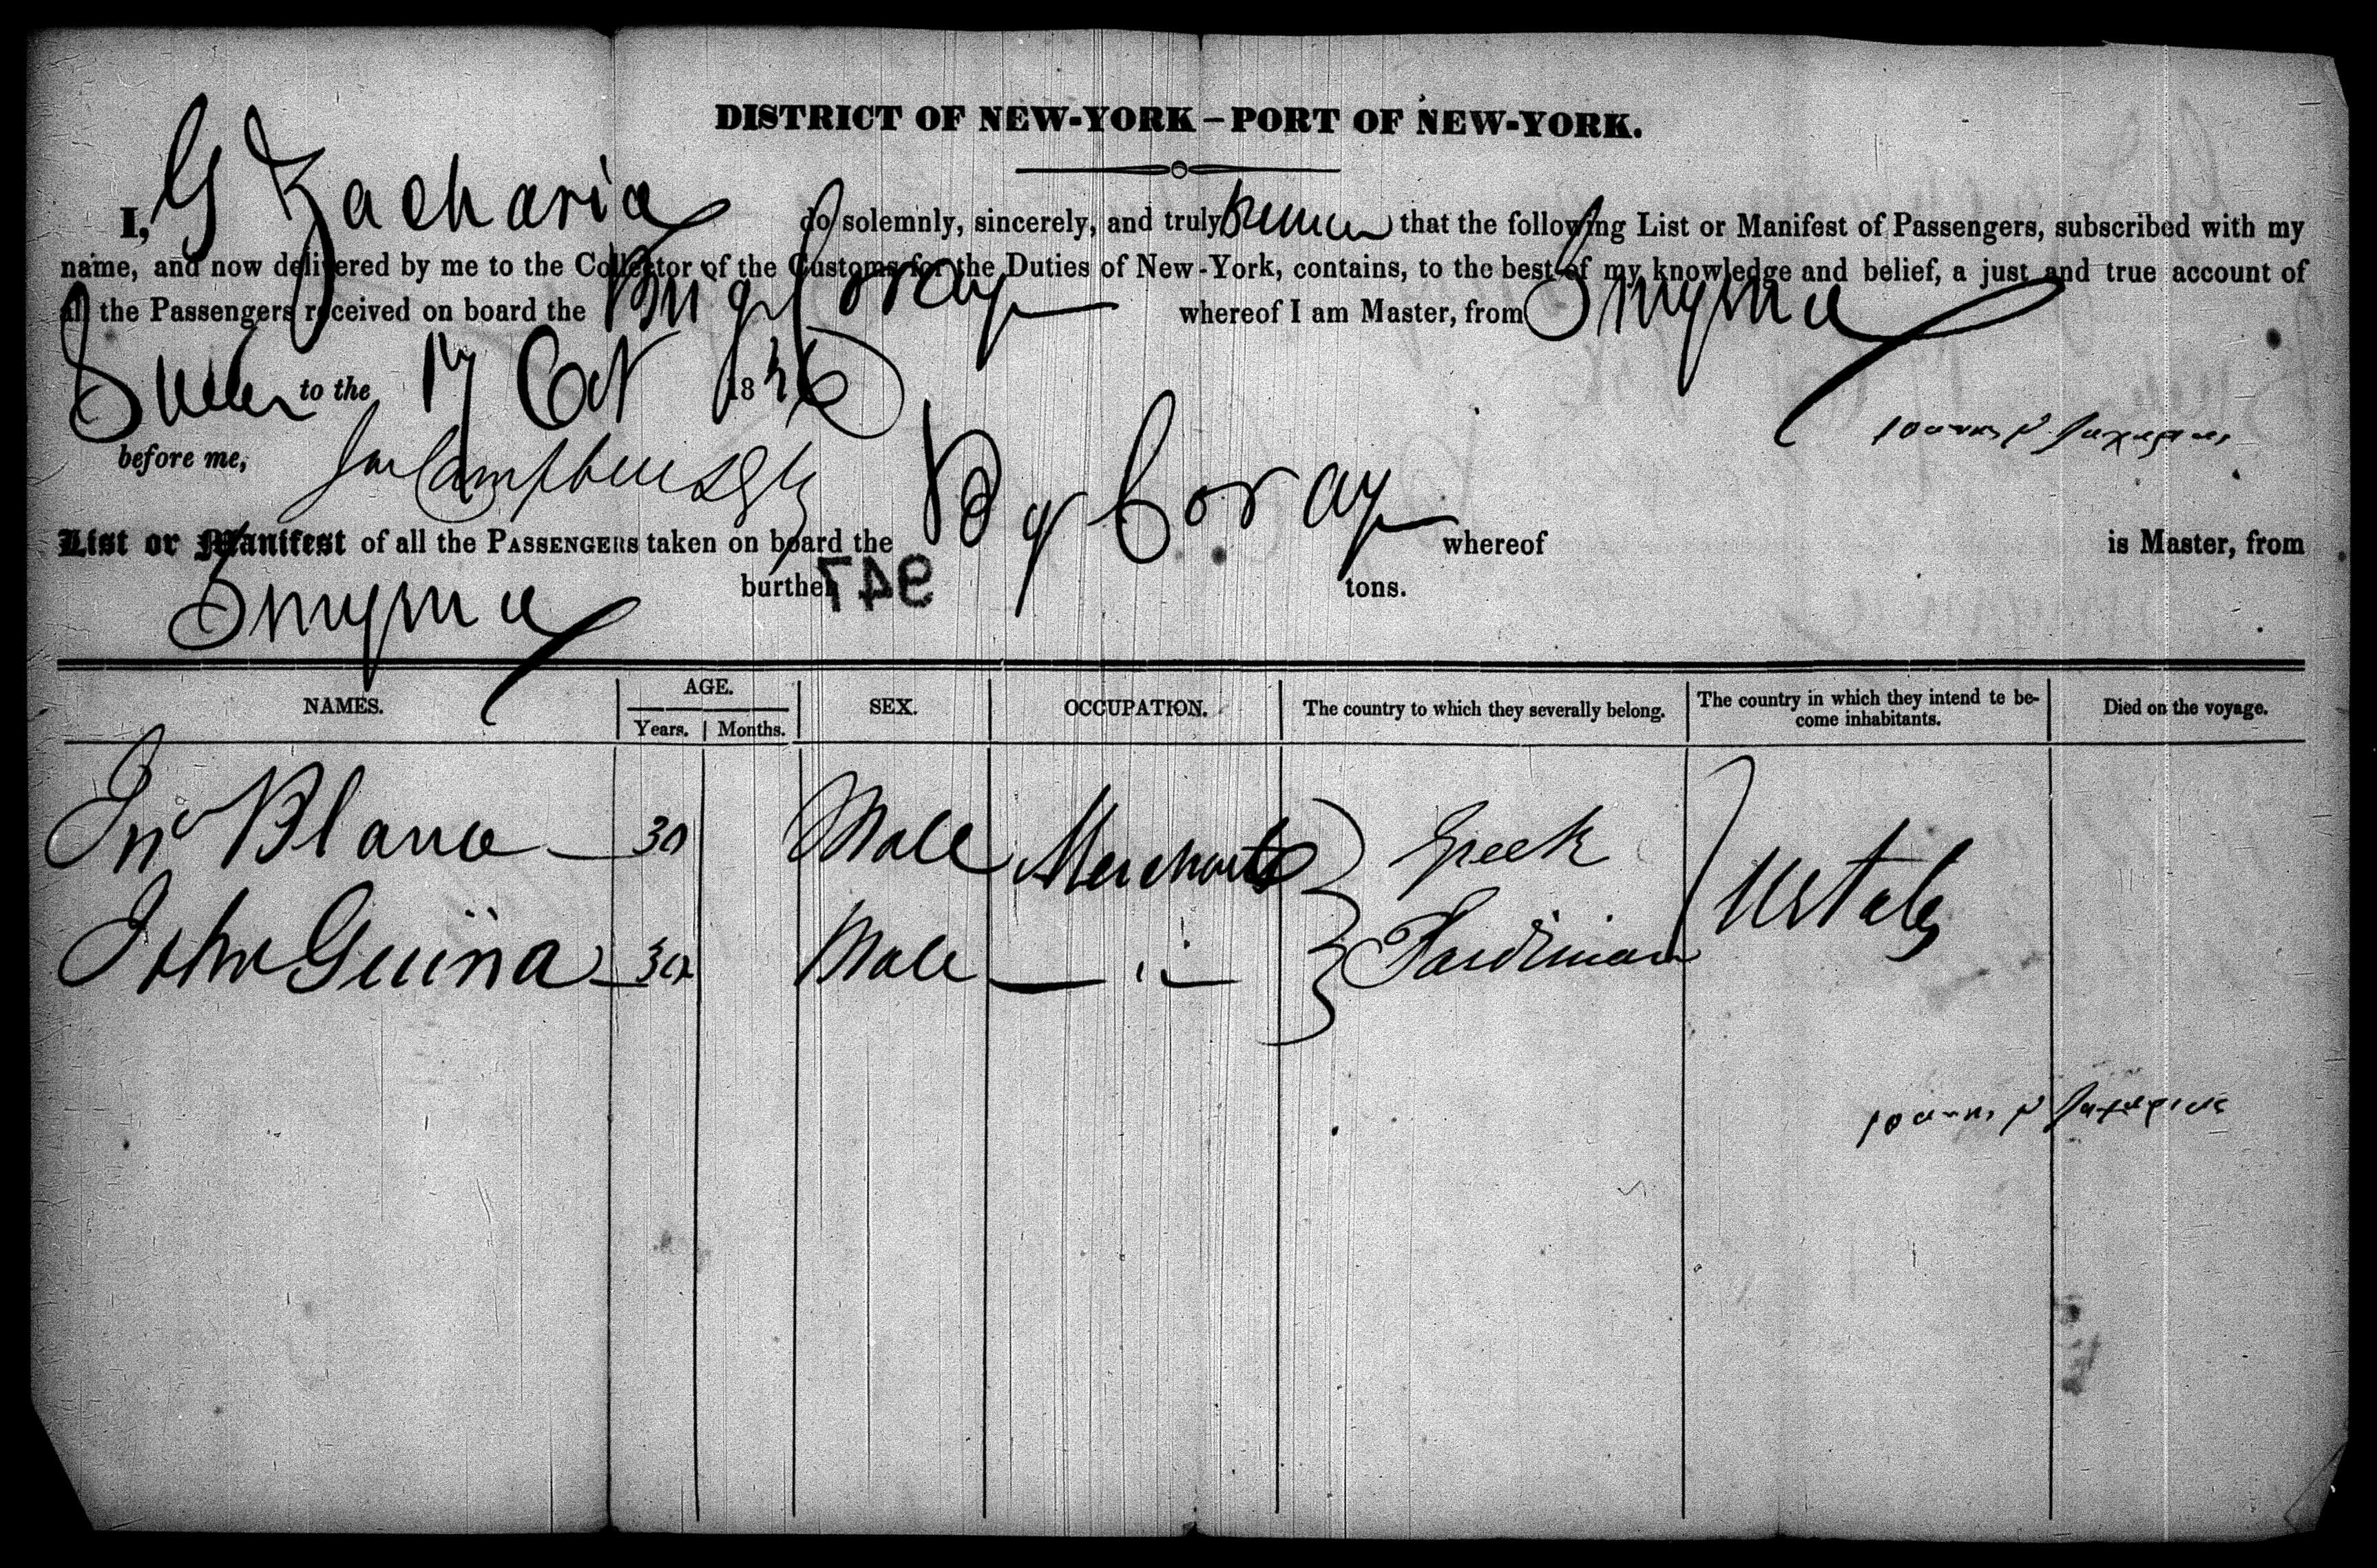 DISTRICT OF NEW-YORK – PORT OF NEW-YORK.
I, G Zacharia do solemnly, sincerely, and truly that the following List or Manifest of Passengers, subscribed with my
name, and now delivered by me to the Collector of the Customs for the Duties of New-York, contains, to the best of my knowledge and belief, a just and true account of
all the Passengers received on board the Brig Coray whereof I am Master, from Smyrna
to the 17 Oct 1846
before me,
List or Manifest of all the PASSENGERS taken on board the Bg Coray whereof is Master, from
Smyrna burthen 947 tons.
NAMES. AGE. SEX. OCCUPATION. The country to which they severally belong. The country in which they intend to be-
come inhabitants. Died on the voyage.
Years. Months.
Jno Blanco 30 Male Merchants Greek
John Guina 30 Male " Sardinian U States